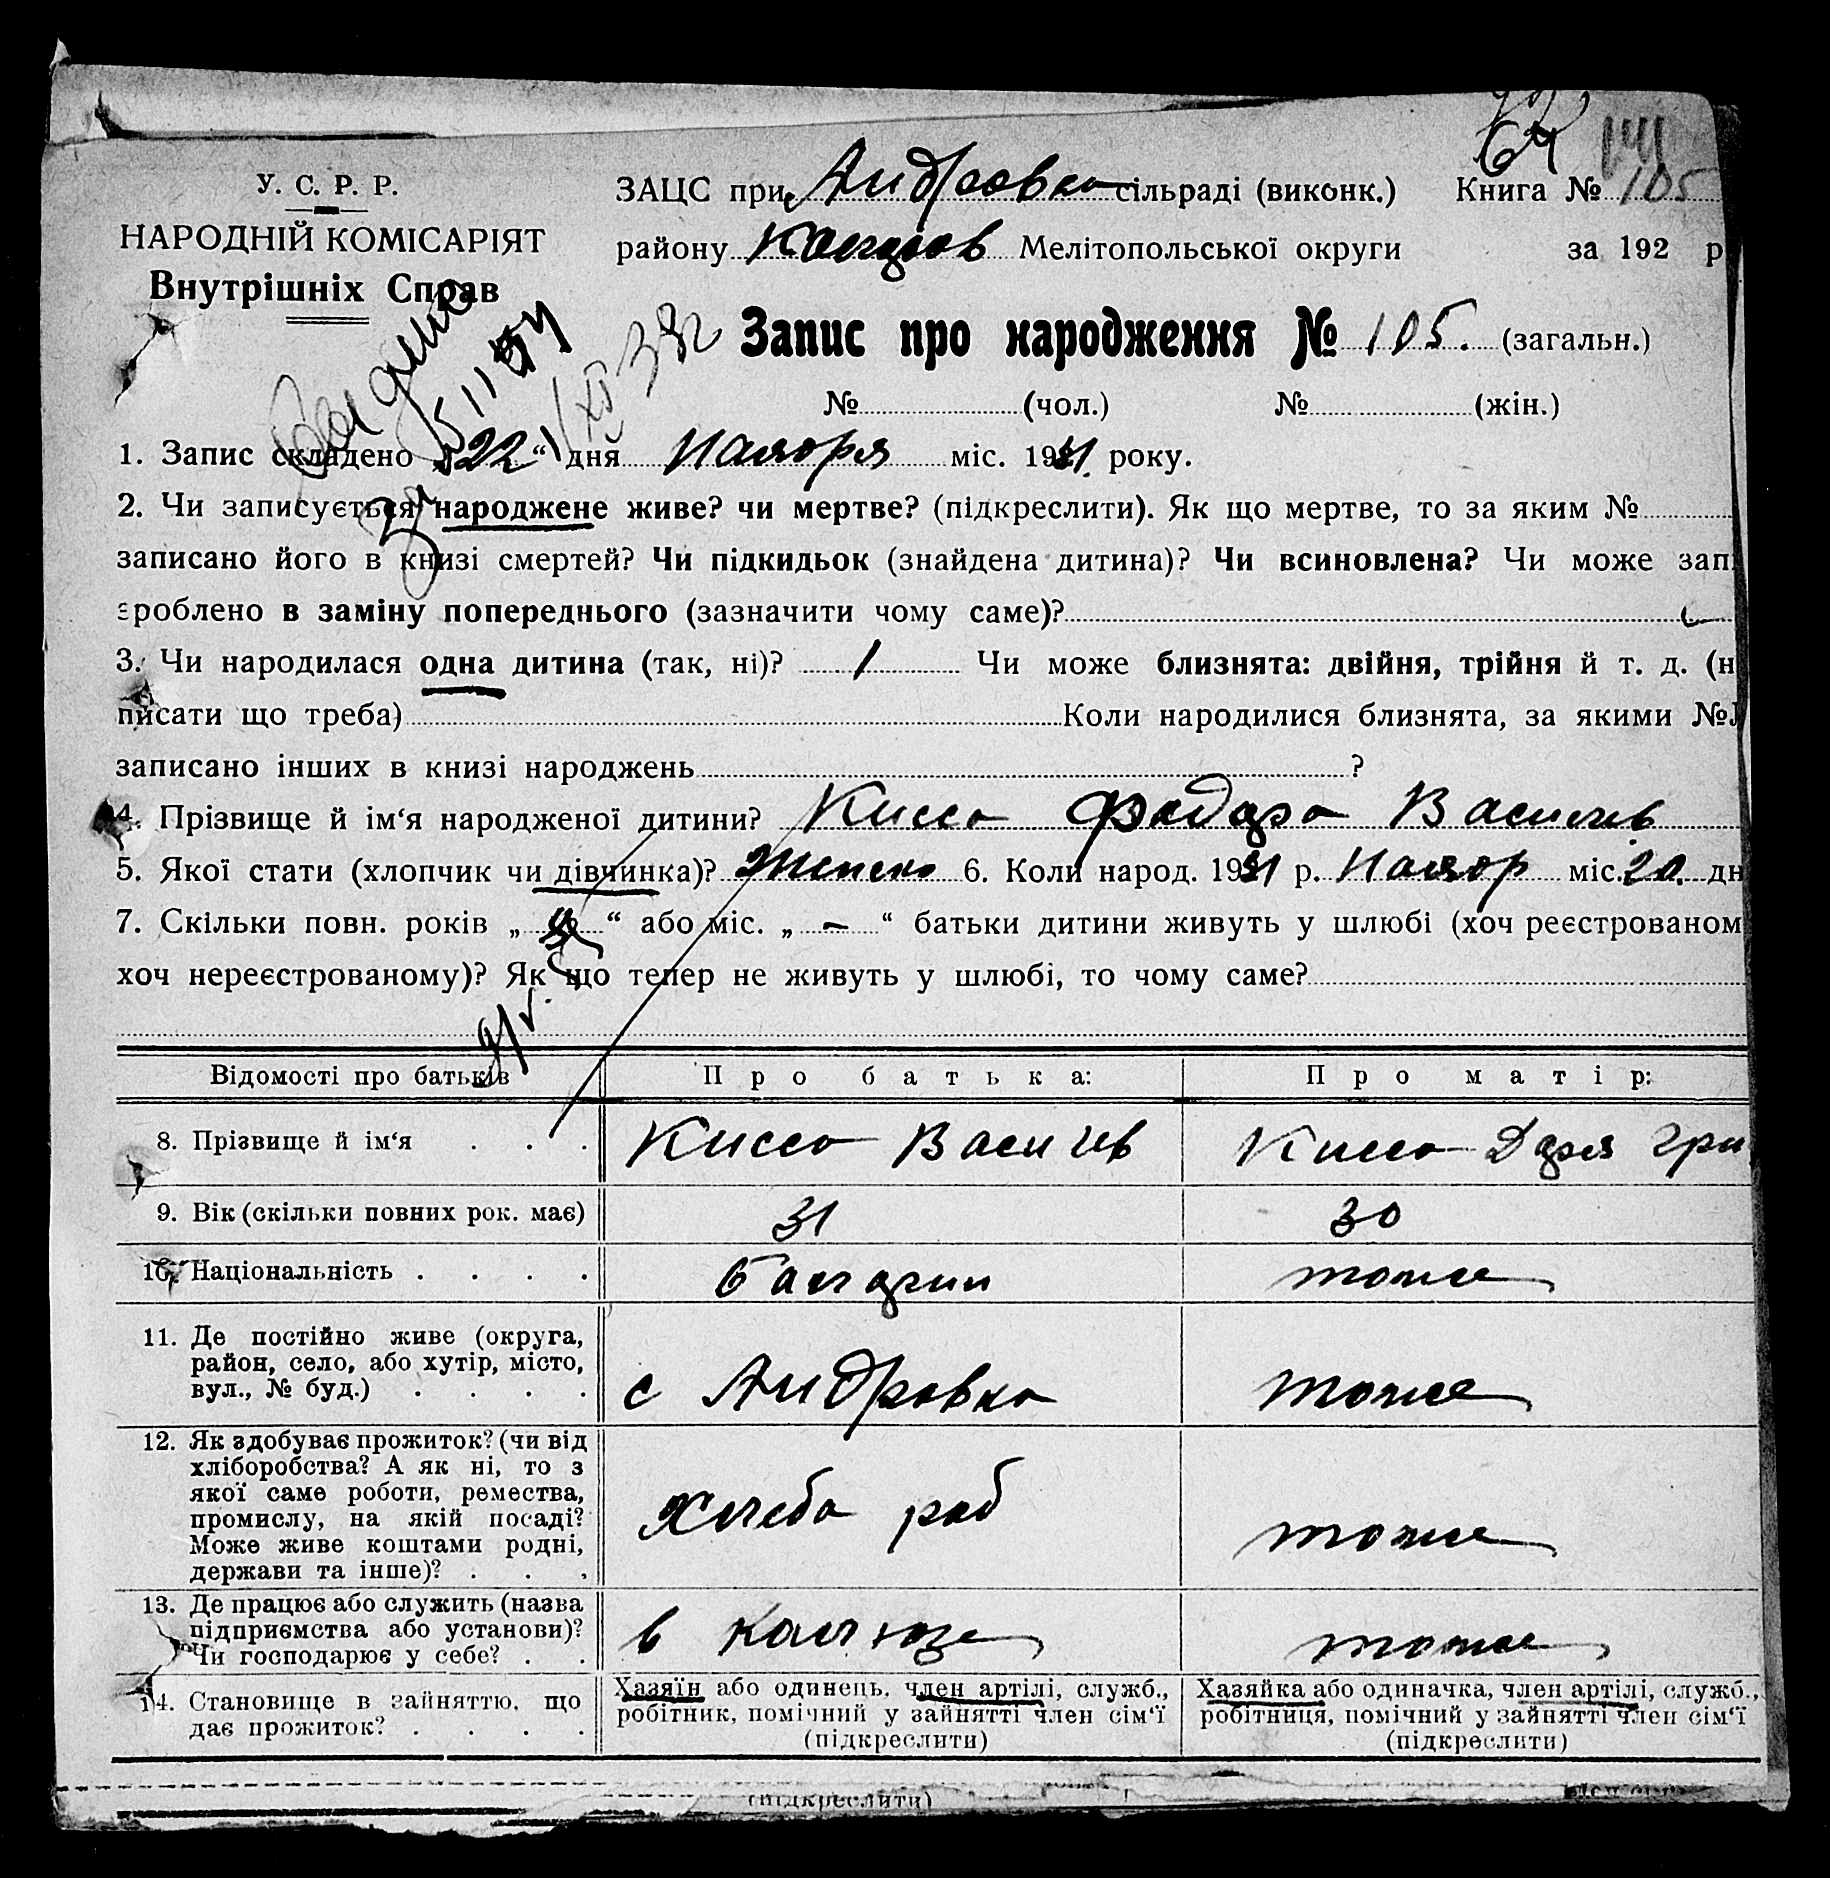 64 141
У. С. Р. Р.
НАРОДНІЙ КОМІСАРІЯТ
Внутрішніх Справ
ЗАЦС при Андровка сільраді (виконк.) Книга № 105
району Мелітопольської округи за 192 р
Запис про народження № 105. (загальн.)
№ (чол.) № (жін.)
1. Запис складено „22“ дня Наября міс. 1931 року.
2. Чи записується народжене живе? чи мертве? (підкреслити). Як що мертве, то за яким №
записано його в книзі смертей? Чи підкидьок (знайдена дитина)? Чи всиновлена? Чи може зап
зроблено в заміну попереднього (зазначити чому саме)?
3. Чи народилася одна дитина (так, ні)? 1 Чи може близнята: двійня, трійня й т. д. (н
писати що треба) Коли народилися близнята, за якими №
записано інших в книзі народжень ?
4. Прізвище й ім‘я народженої дитини? Кисса Василев
5. Якої стати (хлопчик чи дівчинка)? Женска 6. Коли народ. 1931 р. Наябр міс. 20. дн
7. Скільки повн. років „ “ або міс. „ – “ батьки дитини живуть у шлюбі (хоч реєстрованом
хоч нереєстрованому)? Як що тепер не живуть у шлюбі, то чому саме?
Відомості про батьків Про батька: Про матір:
8. Прізвище й ім‘я . . . Кисса Василев Кисса Даря Гри
9. Вік (скільки повних рок. має) 31 30
10. Національність . . . . балгарин тоже
11. Де постійно живе (округа,
район, село, або хутір, місто,
вул., № буд.) . . . . с Андровка тоже
12. Як здобуває прожиток? (чи від
хліборобства? А як ні, то з
якої саме роботи, ремества,
промислу, на якій посаді?
Може живе коштами родні,
держави та інше)? . . . Хлеба раб тоже
13. Де працює або служить (назва
підприємства або установи)?
Чи господарює у себе? . . в калхозе тоже
14. Становище в зайняттю, що
дає прожиток? . . . .
Хазяїн або одинець, член артілі, служб.,
робітник, помічний у зайнятті член сім‘ї
(підкреслити)
Хазяйка або одиначка, член артілі, служб.,
робітниця, помічний у зайнятті член сім‘ї
(підкреслити)
(підкреслити)